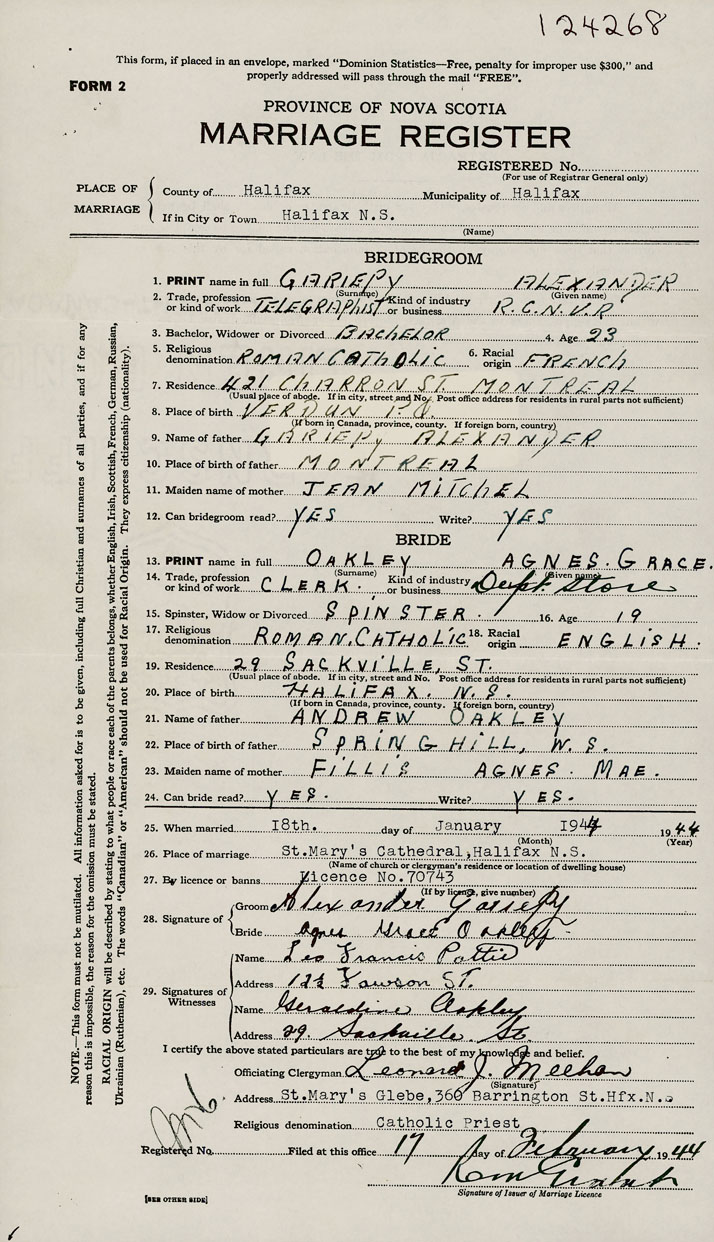 124268
This form, if placed in an envelope, marked “Dominion Statistics—Free, penalty for improper use $300,” and
properly addressed will pass through the mail “FREE”.
FORM 2
PROVINCE OF NOVA SCOTIA
MARRIAGE REGISTER
REGISTERED No.
(For use of Registrar General only)
PLACE OF MARRIAGE
County of Halifax Municipality of Halifax
If in City or Town Halifax N.S.
(Name)
BRIDEGROOM
1. PRINT name in full GARIEPY ALEXANDER
(Surname) (Given name)
2. Trade, profession or kind of work TELEGRAPHIST Kind of industry or business R.C.N.V.R
3. Bachelor, Widower or Divorced BACHELOR 4. Age 23
5. Religious denomination ROMAN CATHOLIC 6. Racial origin FRENCH
7. Residence 421 CHARRON ST MONTREAL
(Usual place of abode. If in city, street and No. Post office address for residents in rural parts not sufficient)
8. Place of birth VERDUN P.Q.
(If born in Canada, province, county. If foreign born, country)
9. Name of father GARIEPY ALEXANDER
10. Place of birth of father MONTREAL
11. Maiden name of mother JEAN MITCHEL
12. Can bridegroom read? YES Write? YES
BRIDE
13. PRINT name in full OAKLEY AGNES. GRACE.
(Surname) (Given name)
14. Trade, profession or kind of work CLERK. Kind of industry or business Dept. Store
15. Spinster, Widow or Divorced SPINSTER. 16. Age 19
17. Religious denomination ROMAN. CATHOLIC 18. Racial origin ENGLISH.
19. Residence 29 SACKVILLE, ST.
(Usual place of abode. If in city, street and No. Post office address for residents in rural parts not sufficient)
20. Place of birth HALIFAX. N.S.
(If born in Canada, province, county. If foreign born, country)
21. Name of father ANDREW OAKLEY
22. Place of birth of father SPRINGHILL, N.S.
23. Maiden name of mother FILLIS AGNES. MAE.
24. Can bride read? YES. Write? YES.
25. When married 18th. day of January 1944 1944
(Month) (Year)
26. Place of marriage St.Mary's Cathedral,Halifax N.S.
(Name of church or clergyman's residence or location of dwelling house)
27. By licence or banns Licence No.70743
(If by licence, give number)
28. Signature of
Groom Alexander Gariepy
Bride Agnes Grace Oakley
29. Signatures of Witnesses
Name Leo Francis Pottie
Address ST.
Name Geraldine Oakley
Address 29. Sackville. St.
I certify the above stated particulars are true to the best of my knowledge and belief.
Officiating Clergyman Leonard J. Meehan
(Signature)
Address St.Mary's Glebe,360 Barrington St.Hfx.N.S
Religious denomination Catholic Priest
Registered No. Filed at this office 17 day of February 1944
Signature of Issuer of Marriage Licence
[SEE OTHER SIDE]
NOTE.—This form must not be mutilated. All information asked for is to be given, including full Christian and surnames of all parties, and if for any
reason this is impossible, the reason for the omission must be stated.
RACIAL ORIGIN will be described by stating to what people or race each of the parents belongs, whether English, Irish, Scottish, French, German, Russian,
Ukrainian (Ruthenian), etc. The words “Canadian” or “American” should not be used for Racial Origin. They express citizenship (nationality).